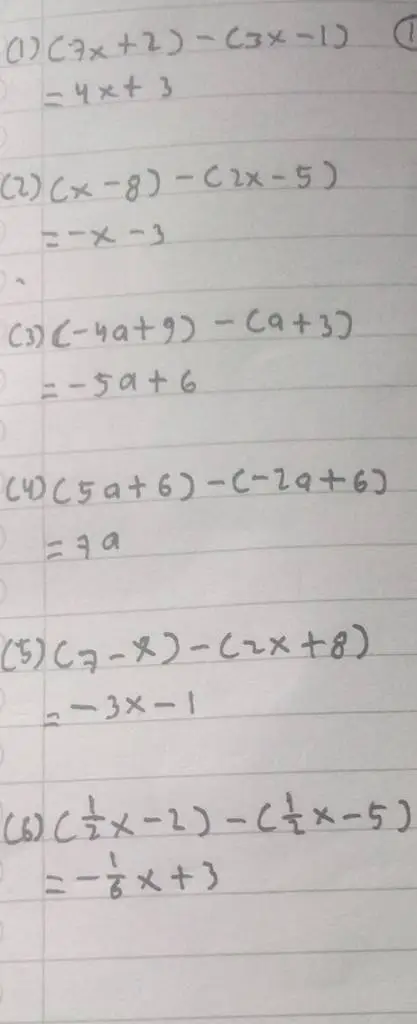 (1) (7x+2)-(3x-1)
=4x+3
(2) (x-8)-(2x-5)
=-x-3
(3) (-4a+9)-(a+3)
=-5a+6
(4) (5a+6)-(-2a+6)
=7a
(5) (7-x)-(2x+8)
=-3x-1
(6) (1/2x-2)-(1/2x-5)
=-1/6x+3